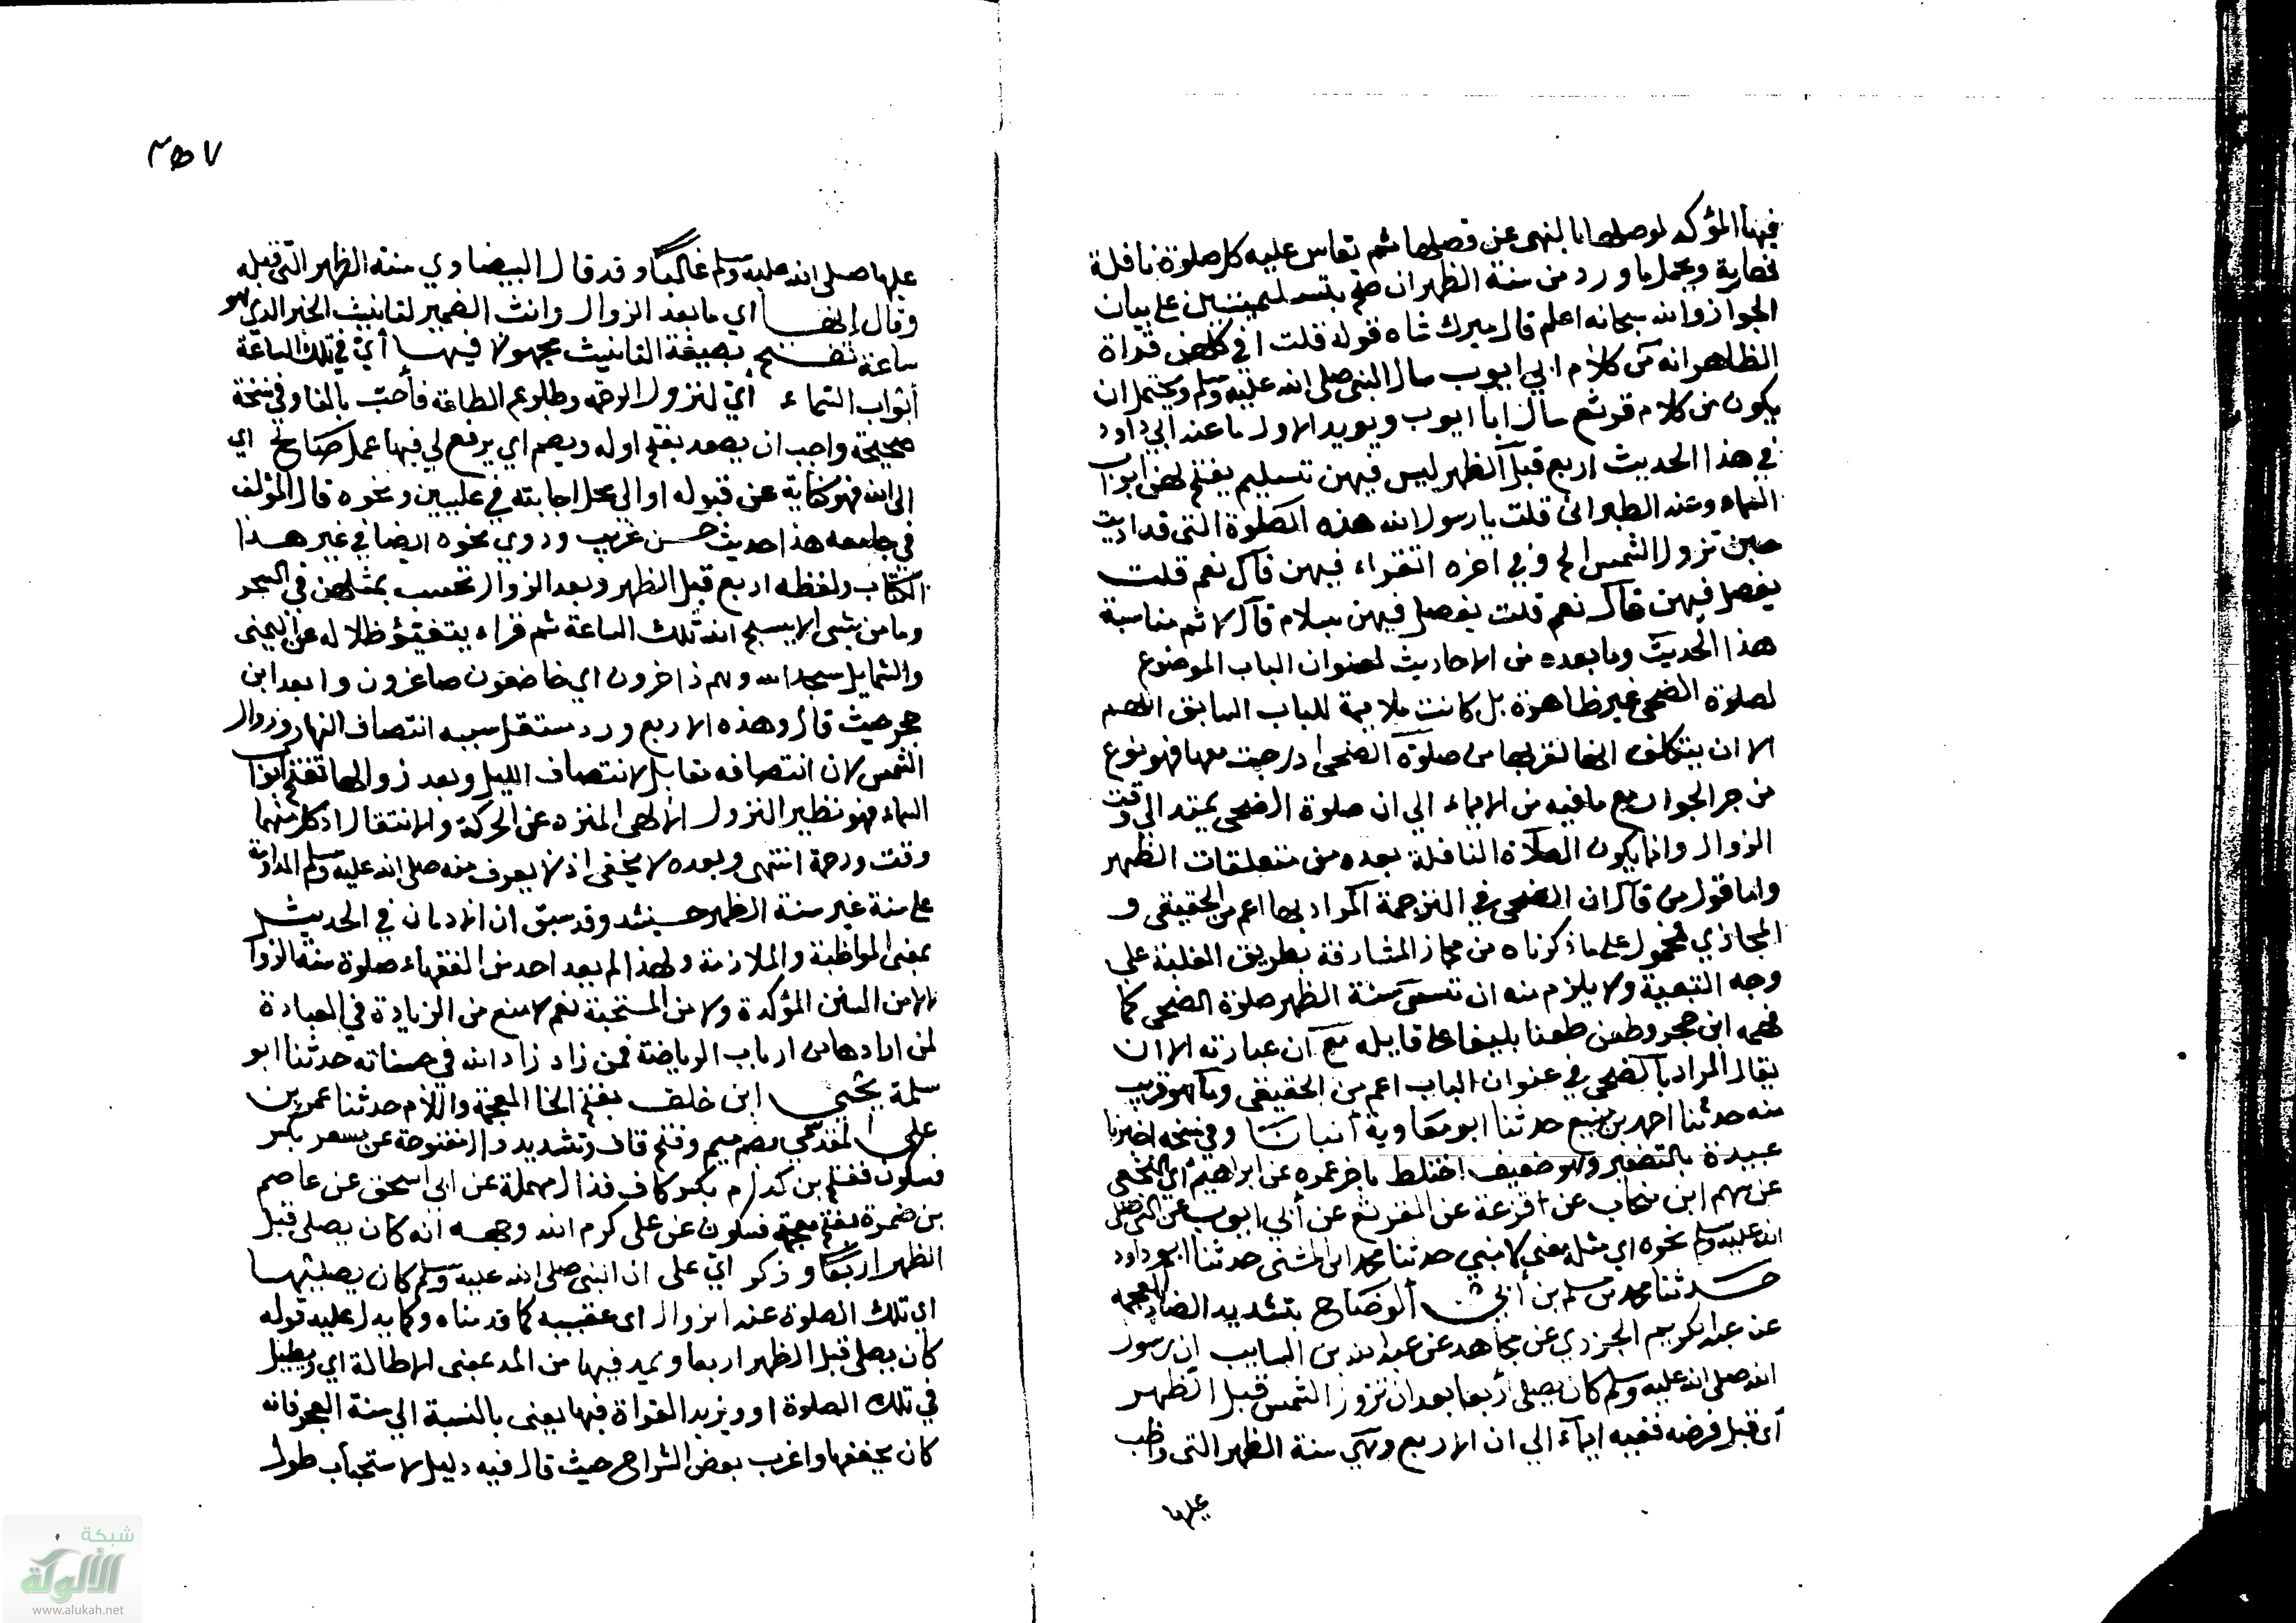 فيها المؤكد لوصلها بالنهي عن فصلها ثم تقاس عليه كل صلوة نافلة
نهارية ويحمل ما ورد من سنة الظهر ان صح بتسليمتين على بيان
الجواز والله سبحانه اعلم قال ميرك شاه قوله قلت افي كلهن قراة
الظاهر انه من كلام ابي ايوب سال النبي صلى الله عليه وسلم ويحتمل ان
يكون من كلام قرثع سال ابا ايوب ويويد الاول ما عند ابي داود
في هذا الحديث اربع قبل الظهر ليس فيهن تسليم يفتح لهن ابواب
السماء وعند الطبراني قلت يا رسول الله هذه الصلوة التي قد اديت
حين تزول الشمس الخ وفي اخره اتقراء فيهن قال نعم قلت
يفصل فيهن قال نعم قلت يفصل فيهن بسلام قال لا ثم مناسبة
هذا الحديث وما بعده من الاحاديث لعنوان الباب الموضوع
لصلوة الضحى غير ظاهرة بل كانت ملايمة للباب السابق اللهم
الا ان يتكلف انها لقربها من صلوة الضحى ادرجت معها فهو نوع
من جر الجوار مع ما فيه من الايماء الى ان صلوة الضحى يمتد الى وقت
الزوال وانما يكون الصلاة النافلة بعده من متعلقات الظهر
واما قول من قال ان الضحى في الترجمة المراد بها اعم من الحقيقي و
المجازي فمحمول على ما ذكرناه من مجاز المشارفة بطريق الغلبة على
وجه التبعية ولا يلزم منه ان تسمى سنة الظهر صلوة الضحى كما
فهمه ابن حجر وطعن طعنا بليغا على قايله مع ان عبارته الا ان
يقال المراد بالضحى في عنوان الباب اعم من الحقيقي وما هو قريب
منه حدثنا احمد بن منيع حدثنا ابو معاوية أنبانا وفي نسخة اخبرنا
عبيدة بالتصغير وهو ضعيف اختلط باخر عمره عن ابراهيم اي النخعي
عن سهم ابن منجاب عن قزعة عن القرثع عن أبي ايوب عن النبي صلى
الله عليه وسلم نحوه اي مثله معنى لا مبنى حدثنا محمد ابن المثنى حدثنا ابو داود
حدثنا محمد بن مسلم بن أبي الوضاح بتشديد الضاد المعجمة
عن عبد الكريم الجزري عن مجاهد عن عبد الله بن السايب ان رسول
الله صلى الله عليه وسلم كان يصلي أربعا بعد ان تزول الشمس قبل الظهر
أي قبل فرضه ففيه ايماء الى ان الاربع وهي سنة الظهر التي واظب
عليها
٣٥٧
عليها صلى الله عليه وسلم غالبا وقد قال البيضاوي سنة الظهر التي قبله
وقال إنها اي ما بعد الزوال وانث الضمير لتانيث الخبر الذي هو
ساعة تفتح بصيغة التانيث مجهولا فيها أي في تلك الساعة
أبواب السماء أي لنزول الرحمة وطلوع الطاعة فأحب بالفا وفي نسخة
صحيحة واحب ان يصعد بفتح اوله ويضم اي يرفع لي فيها عمل صالح اي
الى الله فهو كناية عن قبوله او الى محل اجابته في عليين ونحوه قال المؤلف
في جامعه هذا حديث حسن غريب وروي نحوه ايضا في غير هذا
الكتاب ولفظه اربع قبل الظهر وبعد الزوال تحسب بمثلهن في السحر
وما من شي الا يسبح الله تلك الساعة ثم قراء يتفيؤ ظلاله عن اليمنى
والشمايل سجدا لله وهم داخرون اي خاضعون صاغرون وابعد ابن
حجر حيث قال وهذه الاربع ورد مستقل سببه انتصاف النهار وزوال
الشمس لان انتصافه مقابل لانتصاف الليل وبعد زوالها تفتح ابواب
السماء فهو نظير النزول الالهي المنزه عن الحركة والانتقال اذ كل منهما
وقت ورحمة انتهى وبعده لا يخفى اذ لا يعرف منه صلى الله عليه وسلم المداومة
على سنة غير سنة الظهر حينئذ وقد سبق ان الادمان في الحديث
بمعنى المواظبة والملازمة ولهذا لم يعد احد من الفقهاء صلوة سنة الزوال
لا من السنن المؤكدة ولا من المستحبة نعم لا منع من الزيادة في العبادة
لمن ارادها من ارباب الرياضة فمن زاد زاد الله في حسناته حدثنا ابو
سلمة يحيى ابن خلف بفتح الخا المعجمة واللام حدثنا عمر بن
علي المقدمي بضم ميم وفتح قاف وتشديد دال مفتوحة عن مسعر بكسر
فسكون ففتح بن كدام بكسر كاف فدال مهملة عن ابي اسحق عن عاصم
بن ضمرة بفتح معجمة فسكون عن علي كرم الله وجهه انه كان يصلي قبل
الظهر اربعا وذكر اي علي ان النبي صلى الله عليه وسلم كان يصليها
اي تلك الصلوة عند الزوال اى عقيبه كما قدمناه وكما يدل عليه قوله
كان يصلي قبل الظهر اربعا ويمد فيها من المد بمعنى الاطالة اي ويطيل
في تلك الصلوة او ويزيد القراة فيها يعنى بالنسبة الى سنة الفجر فانه
كان يخففها واغرب بعض الشراح حيث قال فيه دليل لاستحباب طول
شبكة
الألوكة
www.alukah.net